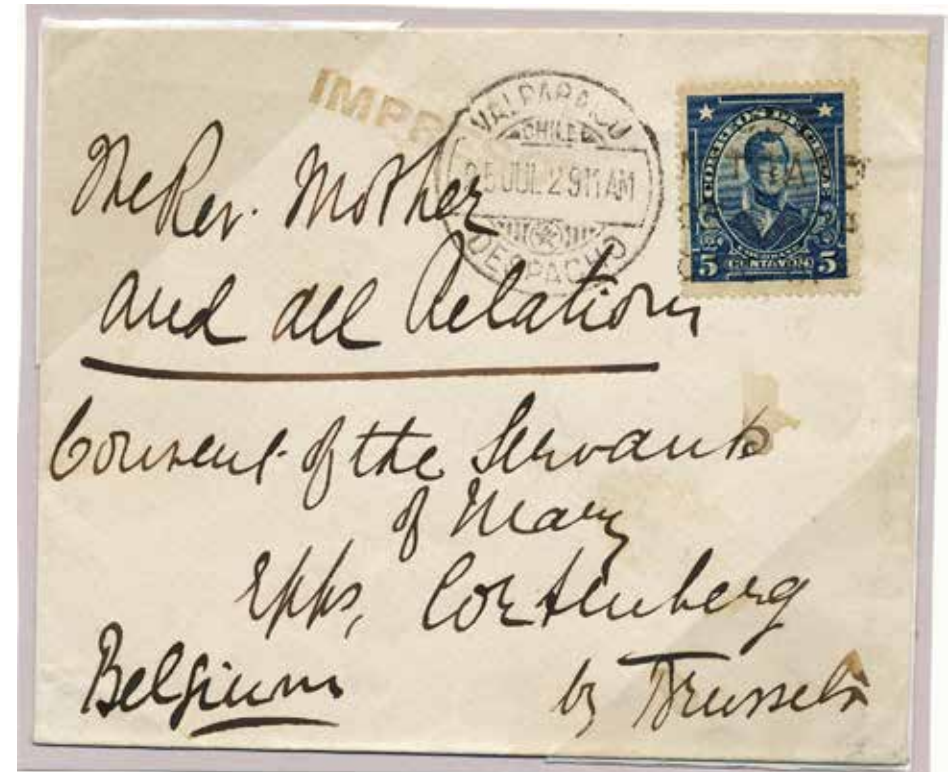 IMPR
VALPARAISO
CHILE
25 JUL 29 11 AM
DESPACHO
CORREOS DE CHILE
5 CENTAVOS 5
The Rev. Mother
and all Relations
Convent of the Servants
of Mary
Epps, Cortenberg
Belgium by Brussels